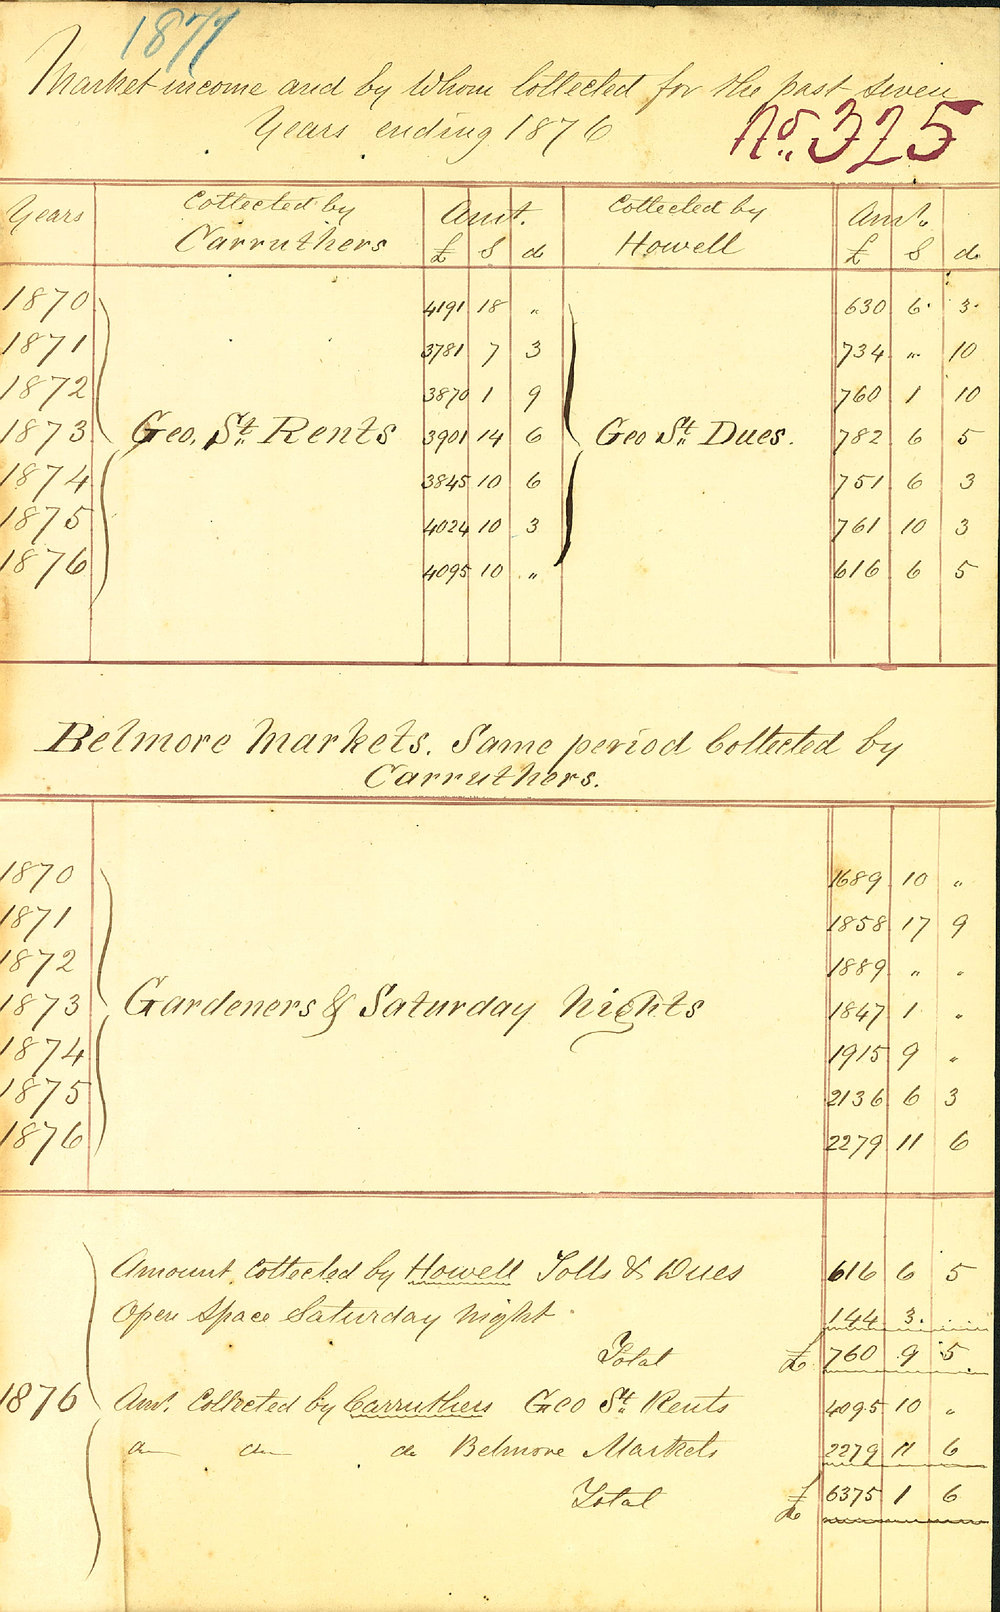 1877
Market income and by Whom Collected for the past seven
Years ending 1876
No. 325
Years Collected by Amt. Collected by Amt.
Carruthers £ S d Howell £ S d
1870 4191 18 " 630 6 3
1871 3781 7 3 734 " 10
1872 3870 1 9 760 1 10
1873 Geo. St. Rents 3901 14 6 Geo St. Dues. 782 6 5
1874 3845 10 6 751 6 3
1875 4024 10 3 761 10 3
1876 4095 10 " 616 6 5
Belmore Markets. Same period Collected by
Carruthers.
1870 1689 10 "
1871 1858 17 9
1872 1889 " "
1873 Gardeners & Saturday Nights 1847 1 "
1874 1915 9 "
1875 2136 6 3
1876 2279 11 6
Amount Collected by Howell Tolls & Dues 616 6 5
Open Space Saturday Night 144 3 "
Total £ 760 9 5
1876 Amt. Collected by Carruthers Geo St. Rents 4095 10 "
do do do Belmore Markets 2279 11 6
Total £ 6375 1 6